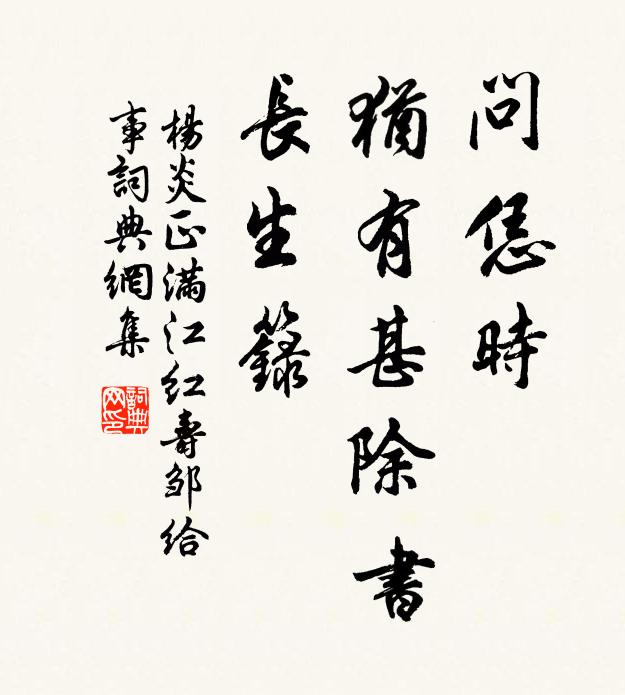 問恁時
猶有甚除書
長生籙
楊炎正滿江紅壽邹给
事詞典網集
詞典
网印